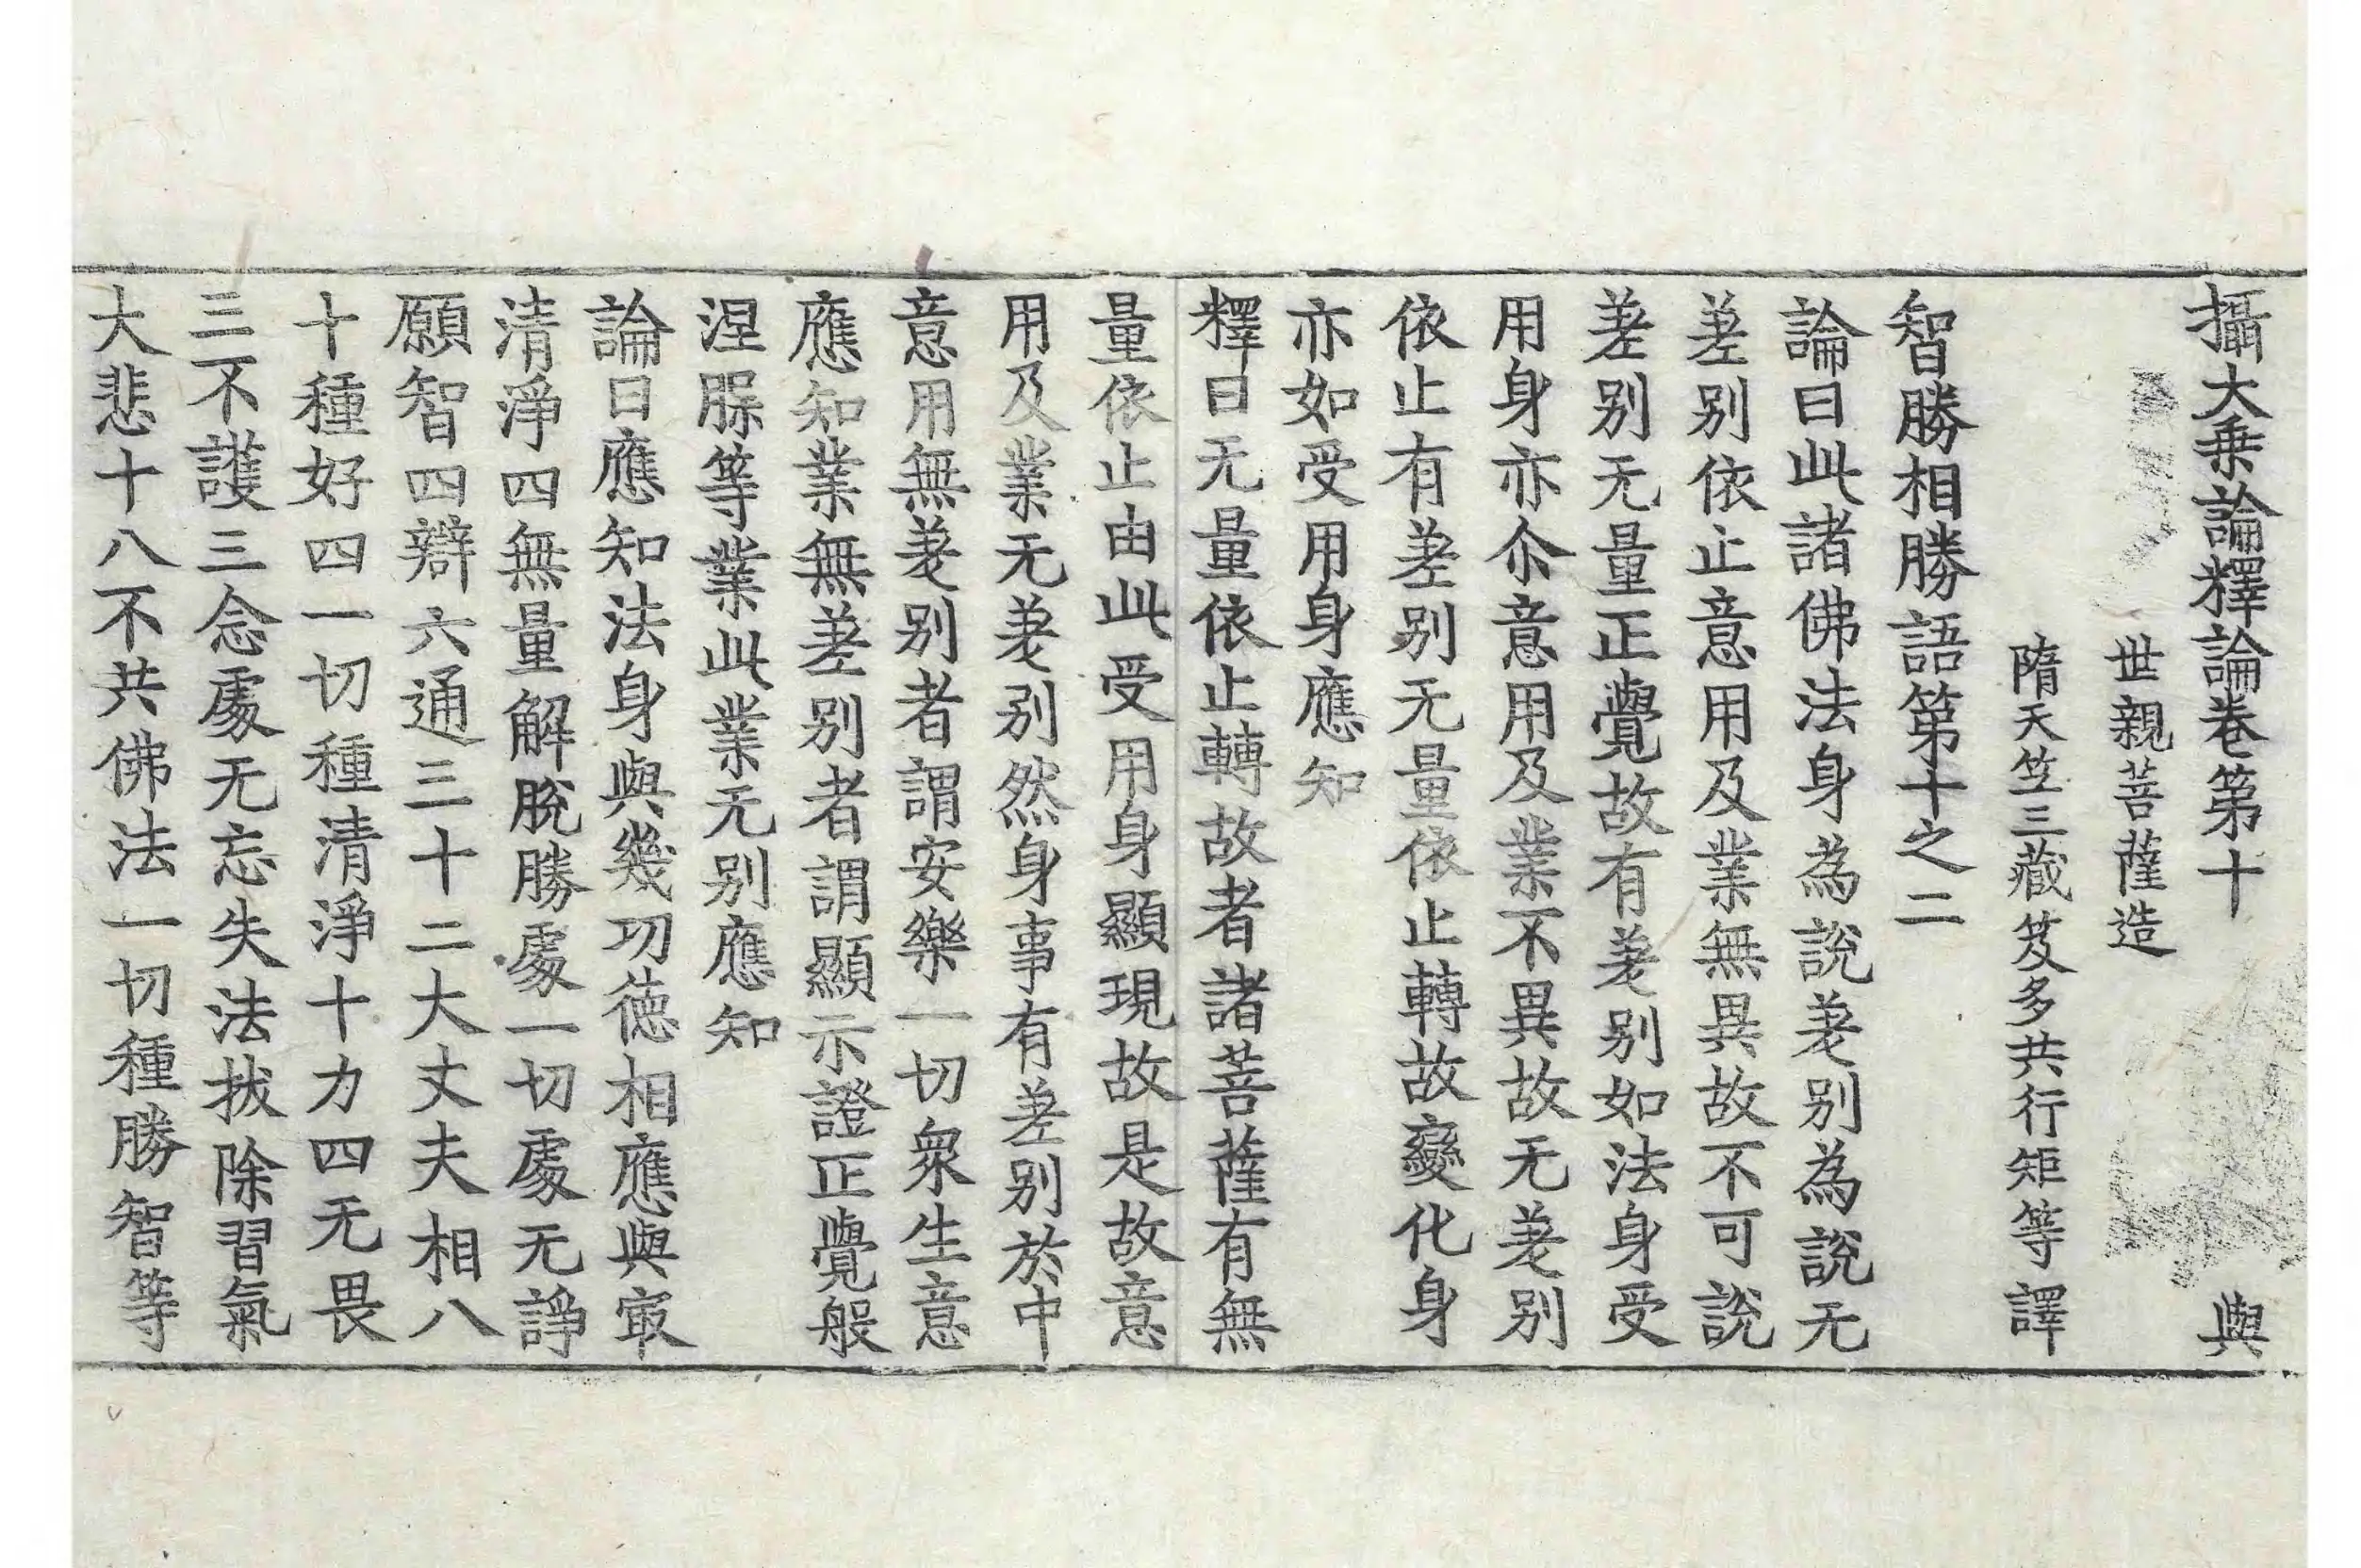 攝大乗論釋論卷第十 與
世親菩薩造
隋天笠三藏笈多共行矩等譯
智勝相勝語第十之二
論曰此諸佛法身為說差别為說无
差别依止意用及業無異故不可說
差别无量正覺故有差别如法身受
用身亦尒意用及業不異故无差别
依止有差别无量依止轉故變化身
亦如受用身應知
釋曰无量依止轉故者諸菩薩有無
量依止由此受用身顯現故是故意
用及業无差别然身事有差别於中
意用無差别者謂安樂一切衆生意
應知業無差别者謂顯示證正覺般
涅槃等業此業无别應知
論曰應知法身與幾功德相應與冣
清淨四無量解脫勝處一切處无諍
願智四辯六通三十二大丈夫相八
十種好四一切種清淨十力四无畏
三不護三念處无忘失法拔除習氣
大悲十八不共佛法一切種勝智等